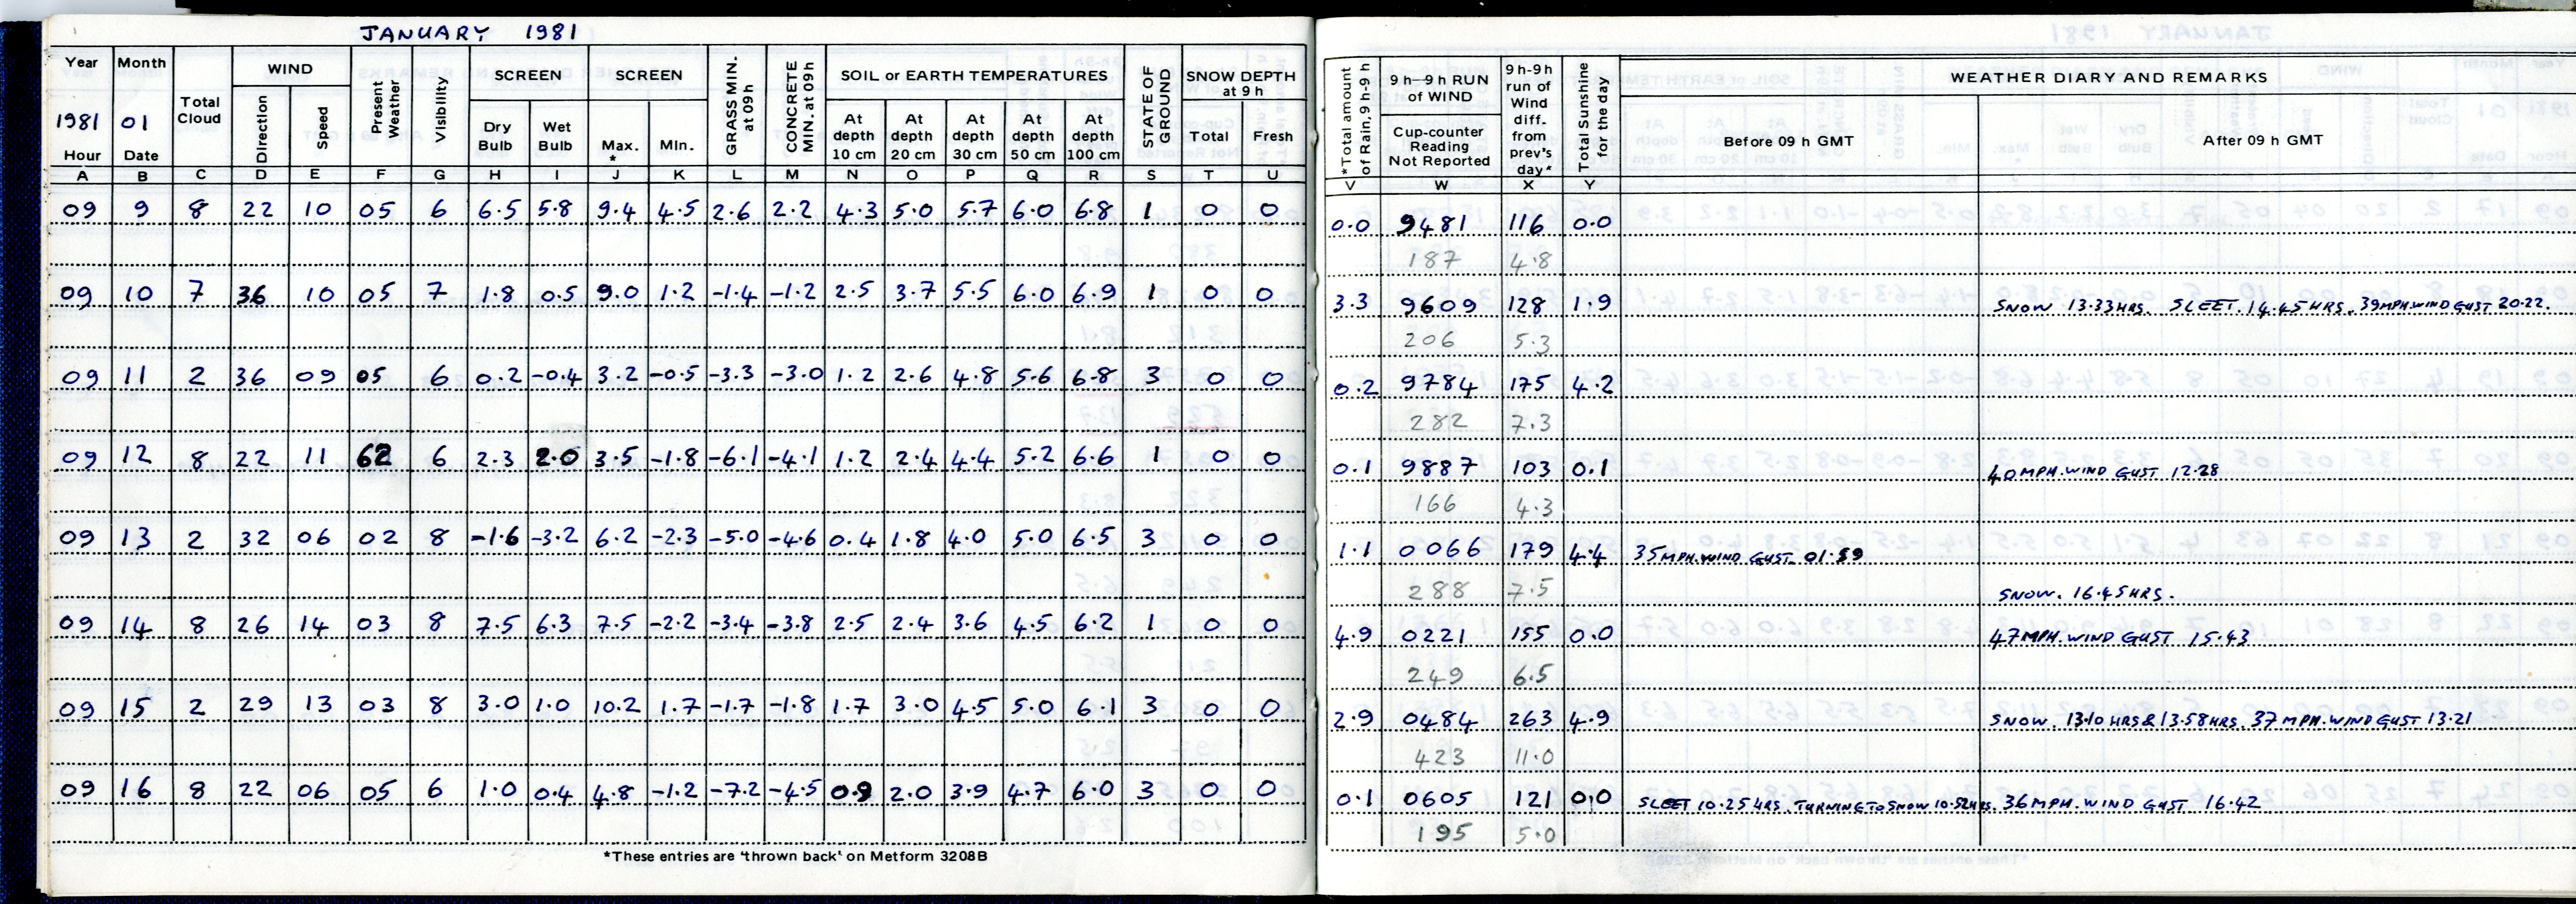 JANUARY 1981
Year Month Total Cloud WIND Present Weather Visibility SCREEN SCREEN GRASS MIN. at 09h CONCRETE MIN. at 09h SOIL or EARTH TEMPERATURES STATE OF GROUND SNOW DEPTH at 9 h
1981 01 Direction Speed Dry Bulb Wet Bulb Max. * Min. At depth 10 cm At depth 20 cm At depth 30 cm At depth 50 cm At depth 100 cm Total Fresh
Hour Date
A B C D E F G H I J K L M N O P Q R S T U
09 9 8 22 10 05 6 6.5 5.8 9.4 4.5 2.6 2.2 4.3 5.0 5.7 6.0 6.8 1 0 0
09 10 7 36 10 05 7 1.8 0.5 9.0 1.2 -1.4 -1.2 2.5 3.7 5.5 6.0 6.9 1 0 0
09 11 2 36 09 05 6 0.2 -0.4 3.2 -0.5 -3.3 -3.0 1.2 2.6 4.8 5.6 6.8 3 0 0
09 12 8 22 11 62 6 2.3 2.0 3.5 -1.8 -6.1 -4.1 1.2 2.4 4.4 5.2 6.6 1 0 0
09 13 2 32 06 02 8 -1.6 -3.2 6.2 -2.3 -5.0 -4.6 0.4 1.8 4.0 5.0 6.5 3 0 0
09 14 8 26 14 03 8 7.5 6.3 7.5 -2.2 -3.4 -3.8 2.5 2.4 3.6 4.5 6.2 1 0 0
09 15 2 29 13 03 8 3.0 1.0 10.2 1.7 -1.7 -1.8 1.7 3.0 4.5 5.0 6.1 3 0 0
09 16 8 22 06 05 6 1.0 0.4 4.8 -1.2 -7.2 -4.5 0.9 2.0 3.9 4.7 6.0 3 0 0
*These entries are 'thrown back' on Metform 3208B
*Total amount of Rain, 9 h-9 h 9 h–9 h RUN of WIND 9 h-9h run of Wind diff. from prev's day* Total Sunshine for the day WEATHER DIARY AND REMARKS
Cup-counter Reading Not Reported Before 09 h GMT After 09 h GMT
V W X Y
0.0 9481 116 0.0
187 4.8
3.3 9609 128 1.9 SNOW 13.33HRS. SLEET. 14.45HRS. 39MPH.WIND GUST 20.22.
206 5.3
0.2 9784 175 4.2
282 7.3
0.1 9887 103 0.1 40MPH.WIND GUST 12.28
166 4.3
1.1 0066 179 4.4 35MPH.WIND GUST 01.59
288 7.5 SNOW. 16.45HRS.
4.9 0221 155 0.0 47MPH.WIND GUST 15.43
249 6.5
2.9 0484 263 4.9 SNOW. 13.10 HRS & 13.58HRS. 37 MPH.WIND GUST 13.21
423 11.0
0.1 0605 121 0.0 SLEET 10.25HRS. TURNING TO SNOW 10.52HRS. 36MPH.WIND GUST 16.42
195 5.0